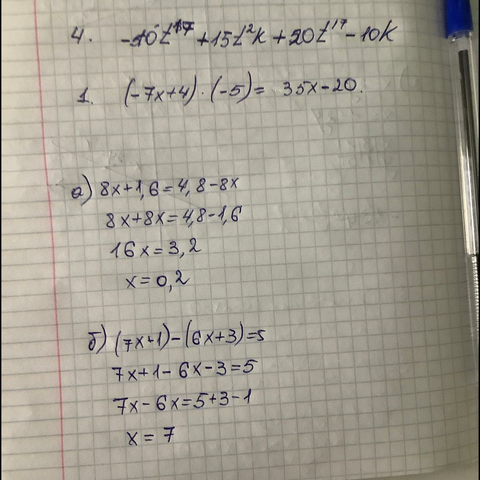 4. -10t¹⁷+15t²k+20t¹⁷-10k
1. (-7x+4)·(-5)= 35x-20.
а) 8x+1,6=4,8-8x
8x+8x=4,8-1,6
16x=3,2
x=0,2
б) (7x+1)-(6x+3)=5
7x+1-6x-3=5
7x-6x=5+3-1
x=7